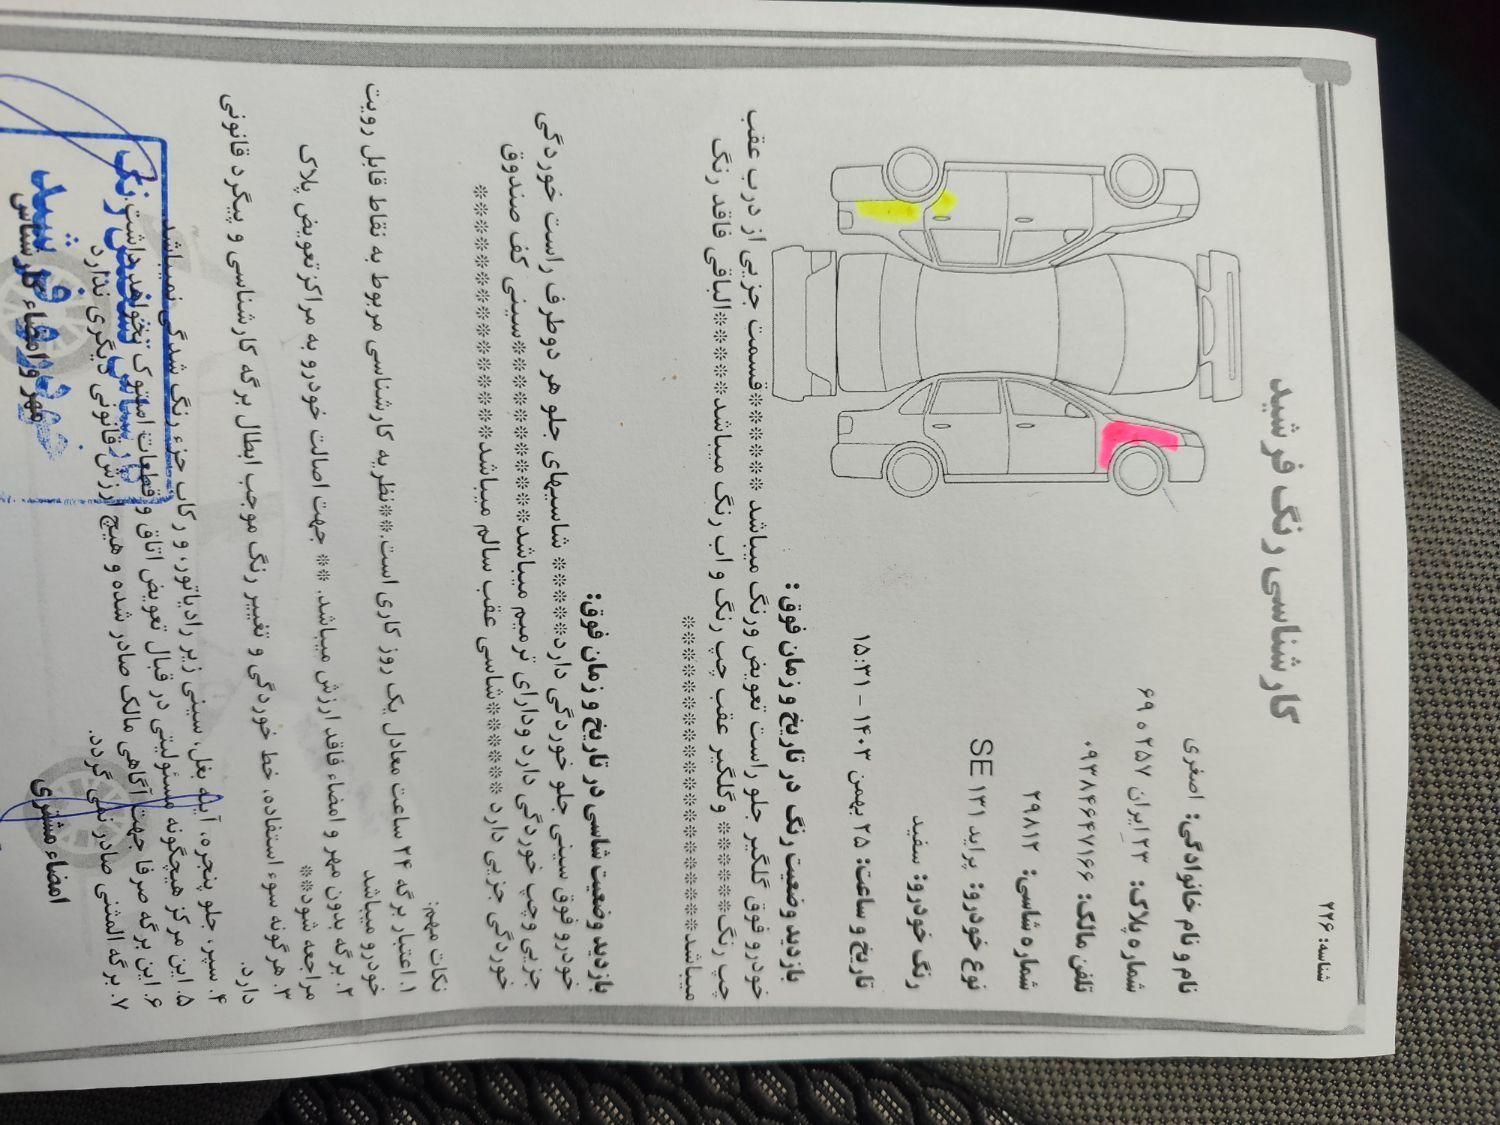 شناسه: ۲۲۶
کارشناسی رنگ فرشید
نام و نام خانوادگی: اصغری
شماره پلاک: ۲۳ ایران ۲۵۷ ه ۶۹
تلفن مالک: ۰۹۳۸۴۶۴۷۱۶۶
شماره شاسی: ۲۹۸۱۲
نوع خودرو: پراید ۱۳۱ SE
رنگ خودرو: سفید
تاریخ و ساعت: ۲۵ بهمن ۱۴۰۳ - ۱۵:۳۱
بازدید وضعیت رنگ در تاریخ و زمان فوق:
خودرو فوق گلگیر جلو راست تعویض ورنگ میباشد ******قسمت جزیی از درب عقب
چپ رنگ****** وگلگیر عقب چپ رنگ و اب رنگ میباشد****الباقی فاقد رنگ
میباشد****************
بازدید وضعیت شاسی در تاریخ و زمان فوق:
خودرو فوق سینی جلو خوردگی دارد**** شاسیهای جلو هر دوطرف راست خوردگی
جزیی وچپ خوردگی دارد ودارای ترمیم میباشد**********سینی کف صندوق
خوردگی جزیی دارد ******شاسی عقب سالم میباشد**************
نکات مهم:
۱. اعتبار برگه ۲۴ ساعت معادل یک روز کاری است.**نظریه کارشناسی مربوط به نقاط قابل رویت
خودرو میباشد
۲. برگه بدون مهر و امضاء فاقد ارزش میباشد. ** جهت اصالت خودرو به مراکز تعویض پلاک
مراجعه شود**
۳. هرگونه سوء استفاده، خط خوردگی و تغییر رنگ موجب ابطال برگه کارشناسی و پیگرد قانونی
دارد.
۴. سپر، جلو پنجره، آینه بغل، سینی زیر رادیاتور، و رکاب جزء رنگ شدگی نمیباشد
۵. این مرکز هیچگونه مسئولیتی در قبال تعویض اتاق و قطعات استوک نخواهد داشت
۶. این برگه صرفا جهت آگاهی مالک صادر شده و هیچ ارزش قانونی دیگری ندارد
۷. برگه المثنی صادر نمی گردد.
امضاء مشتری
مهر و امضاء کارشناس
کارشناسی رنگ
خودرو فرشید